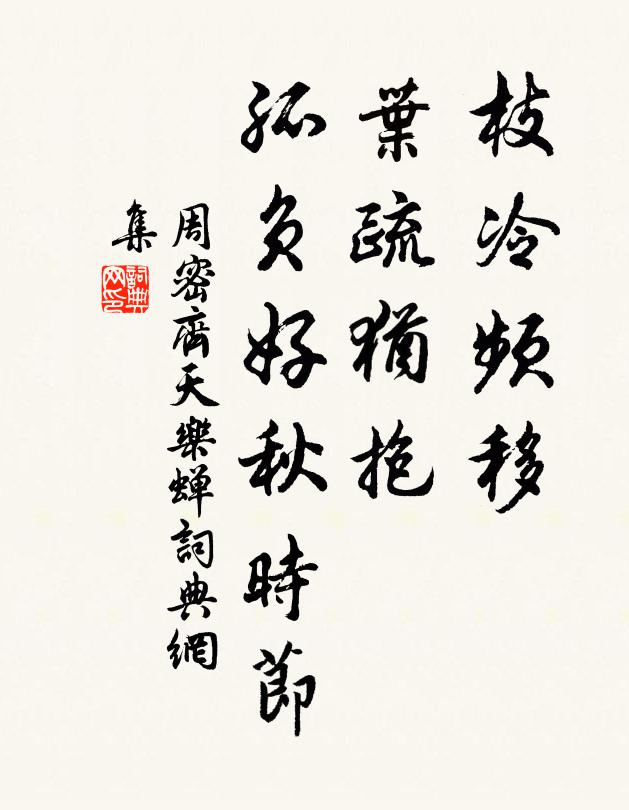 枝冷頻移
葉疏猶抱
孤負好秋時節
周密齊天樂蟬詞典網
集
詞典
网印